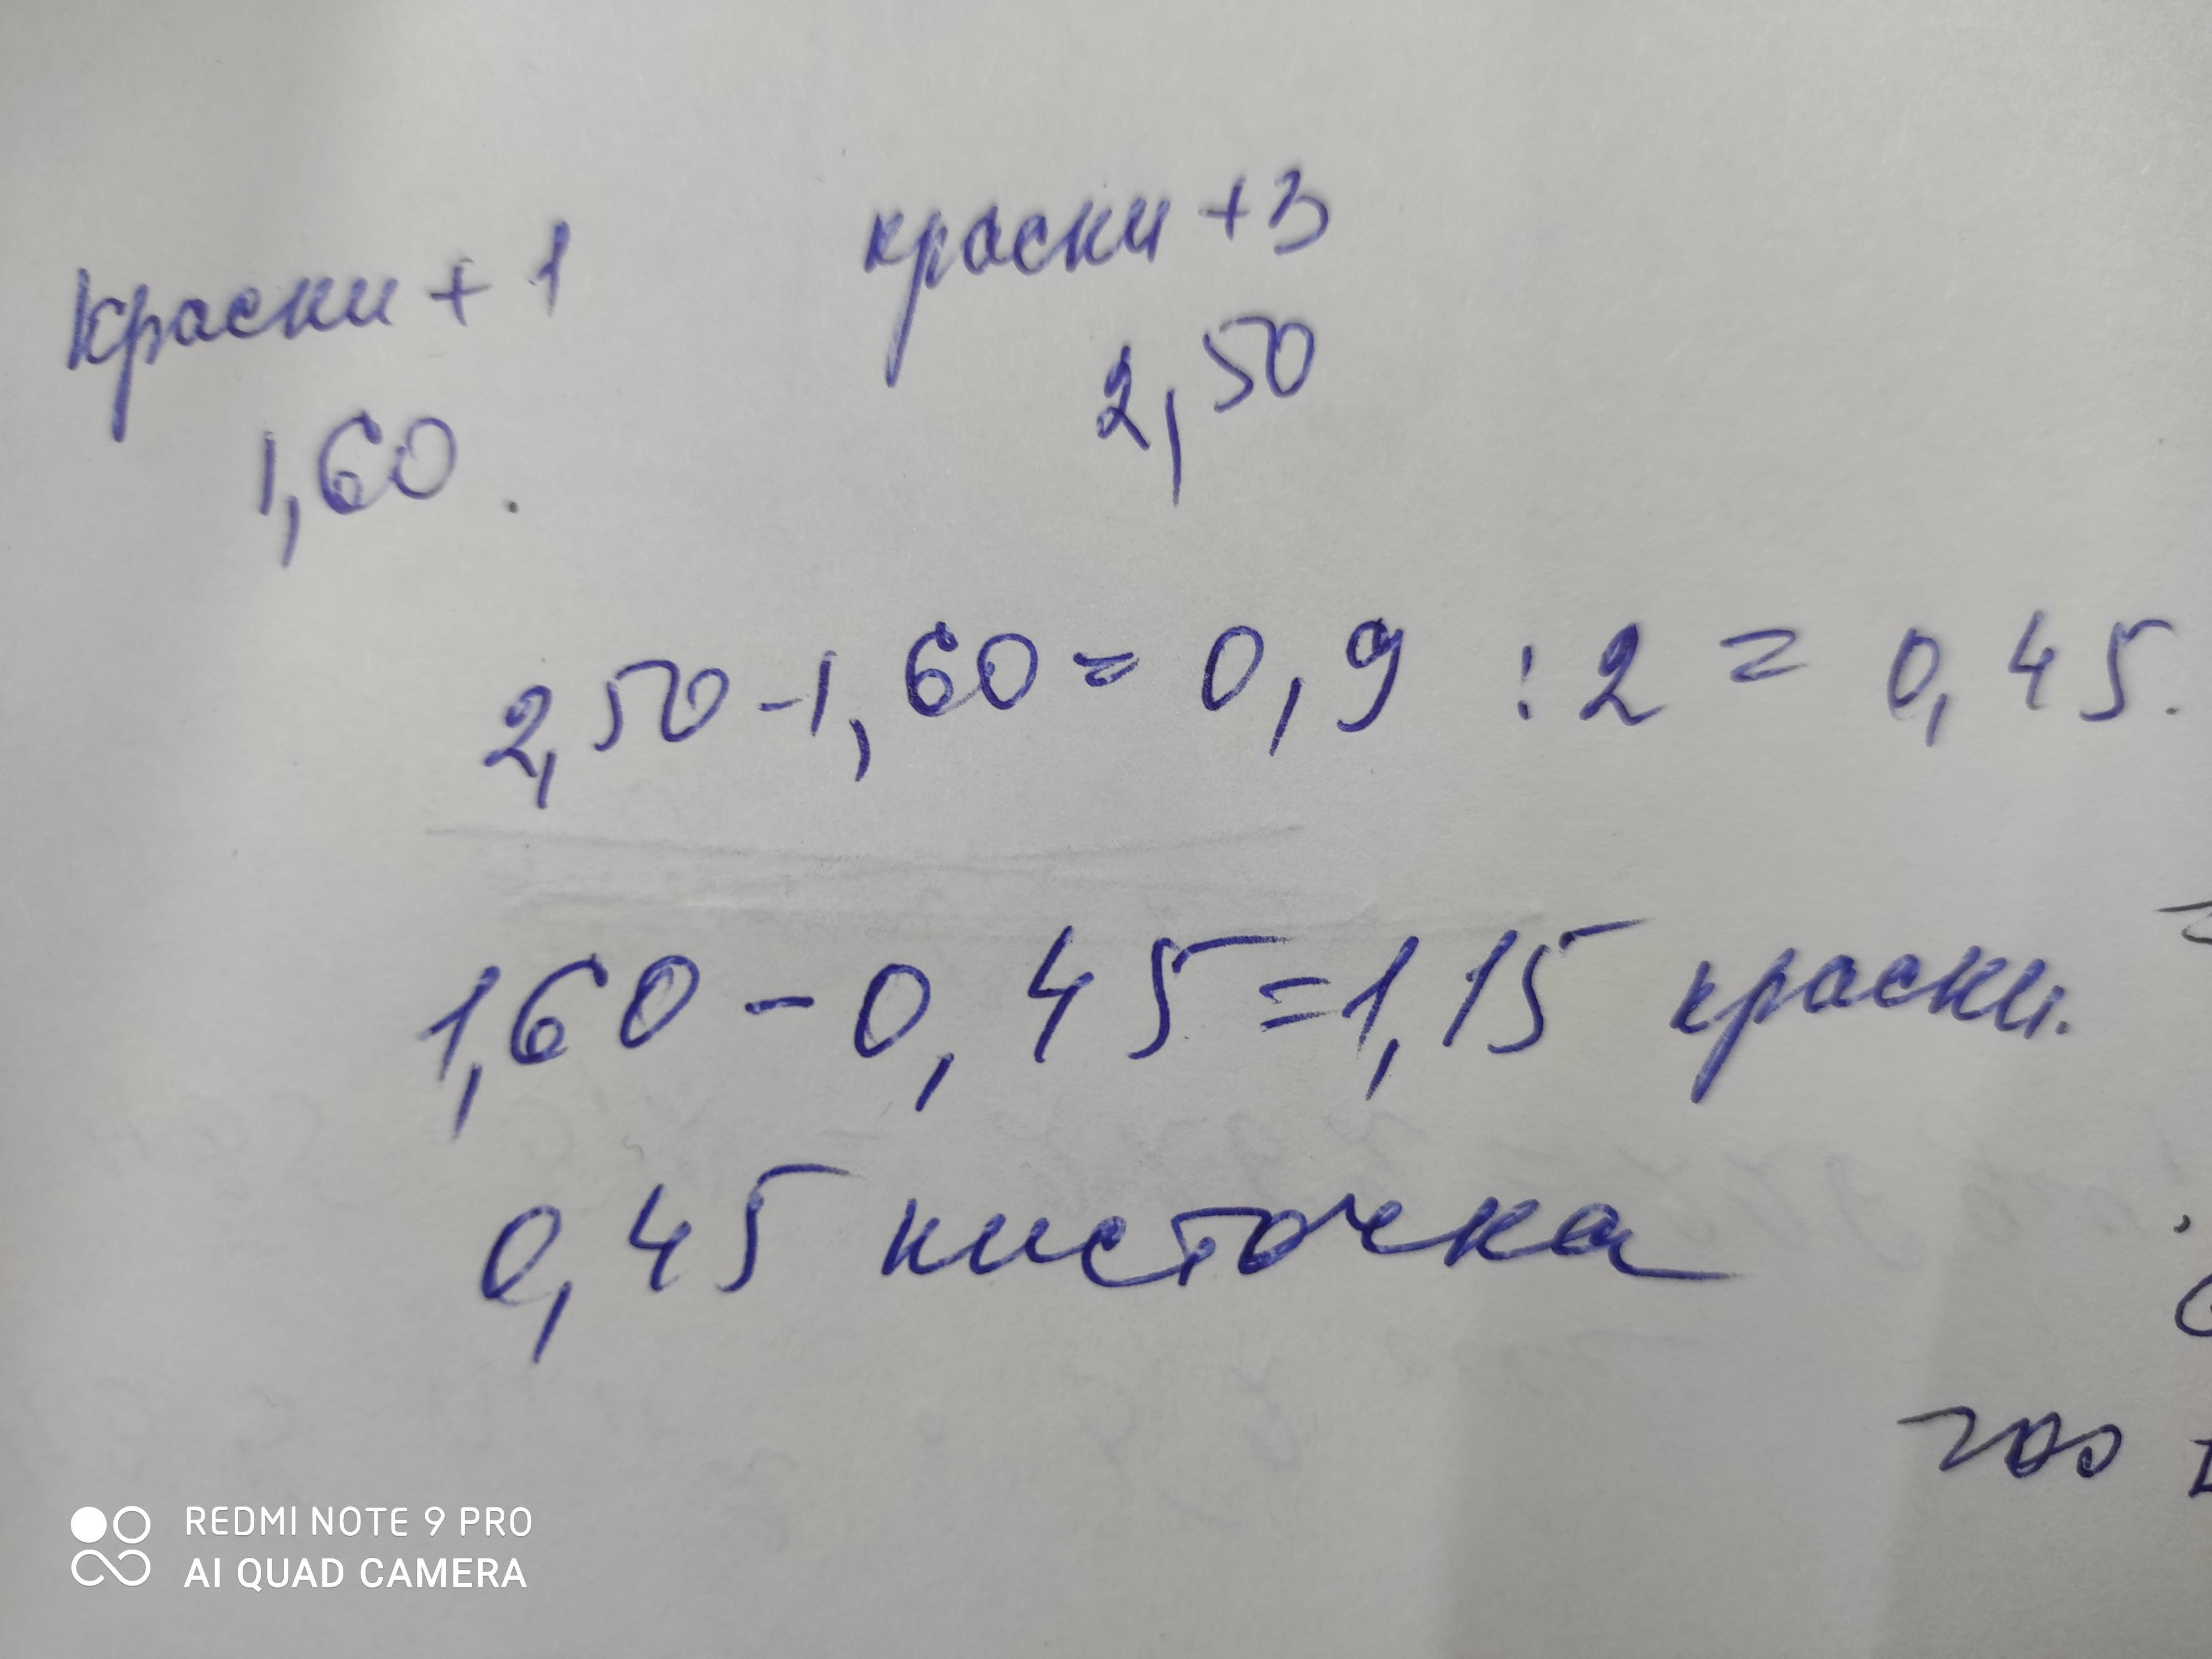 краски + 1
1,60.
краски + 3
2,50
2,50 - 1,60 = 0,9 : 2 = 0,45.
1,60 - 0,45 = 1,15 краски.
0,45 кисточка
REDMI NOTE 9 PRO
AI QUAD CAMERA